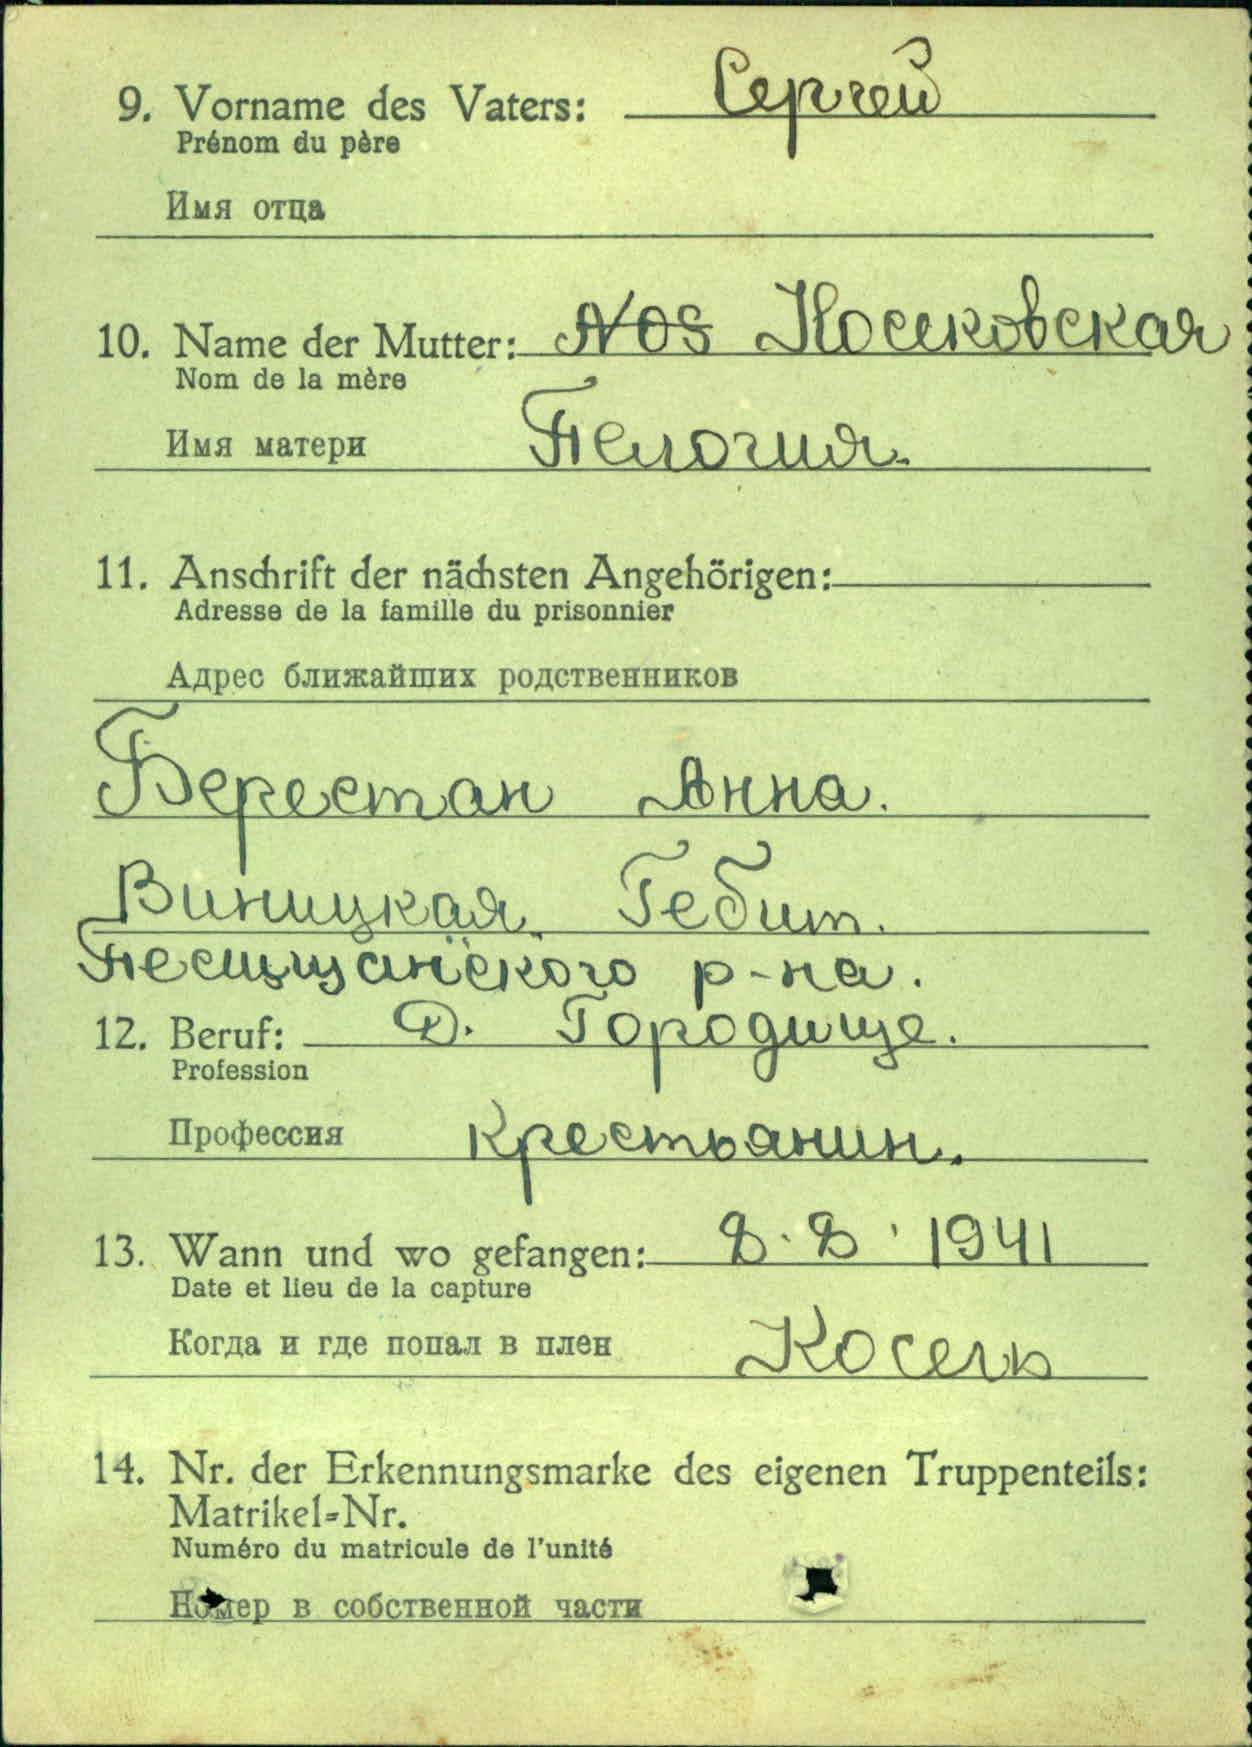 9. Vorname des Vaters: Сергей
Prénom du père
Имя отца
10. Name der Mutter: Nos Носиковская
Nom de la mère
Имя матери Пелогия.
11. Anschrift der nächsten Angehörigen:
Adresse de la famille du prisonnier
Адрес ближайших родственников
Берестан Анна.
Виницкая Гебит.
Песщчанского р-на.
12. Beruf: Д. Городище.
Profession
Профессия Крестьянин.
13. Wann und wo gefangen: 8.8.1941
Date et lieu de la capture
Когда и где попал в плен Косель
14. Nr. der Erkennungsmarke des eigenen Truppenteils:
Matrikel=Nr.
Numéro du matricule de l'unité
Номер в собственной части